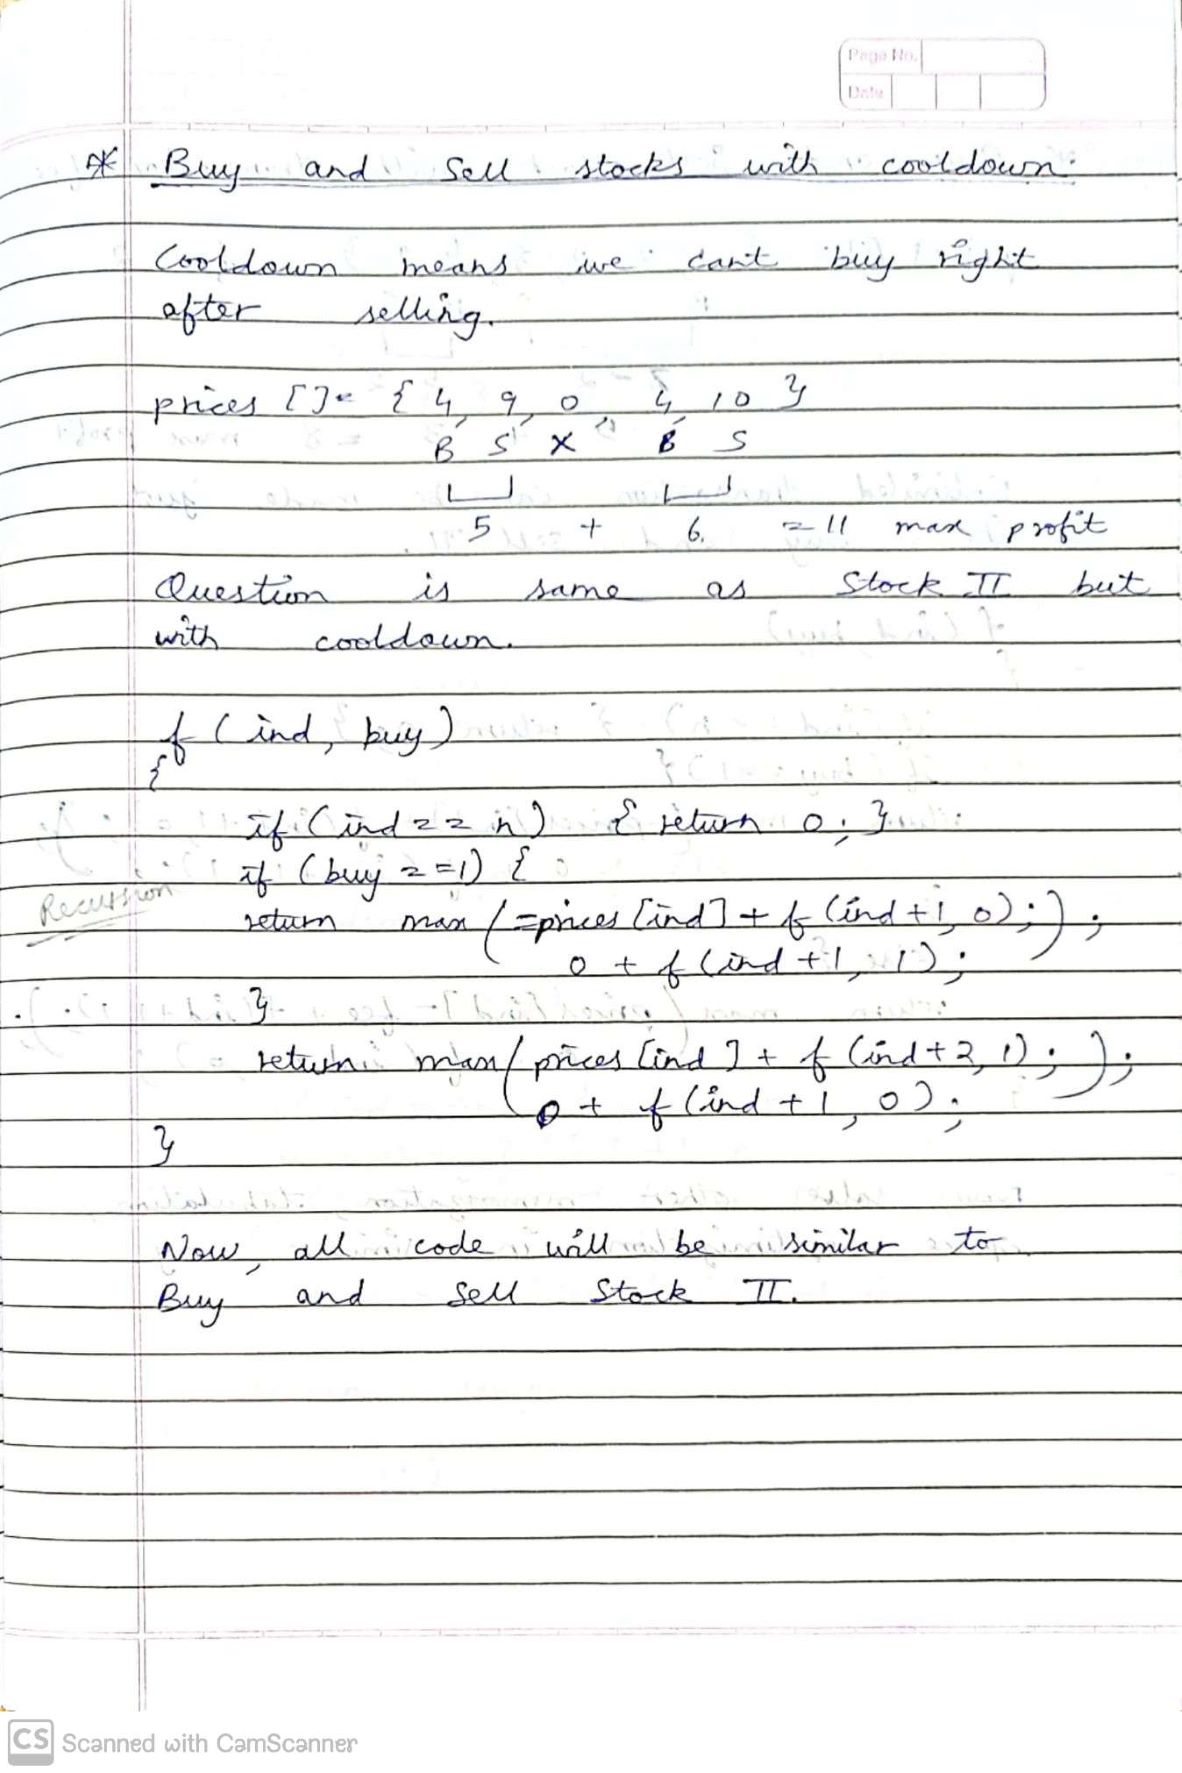 Page No.
Date
* Buy and Sell stocks with cooldown:
Cooldown means we can't buy right
after selling.
prices []= { 4, 9, 0, 4, 10 }
B S X B S
5 + 6 = 11 max profit
Question is same as Stock II but
with cooldown.
f (ind, buy)
{
if (ind == n) { return 0; }
if (buy == 1) {
Recursion
return max (-prices [ind] + f (ind+1, 0); );
0 + f (ind+1, 1);
}
return max ( prices [ind] + f (ind+2, 1); );
0 + f (ind+1, 0);
}
Now, all code will be similar to
Buy and Sell Stock II.
CS Scanned with CamScanner